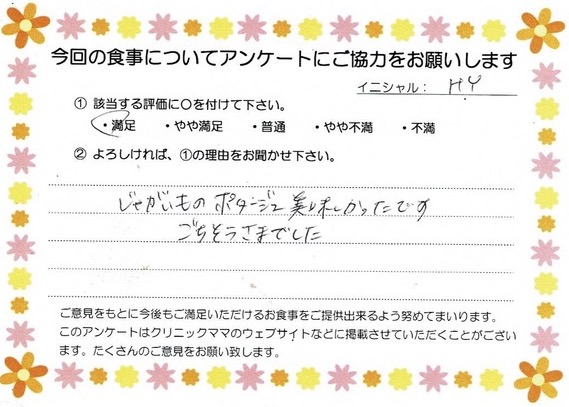 今回の食事についてアンケートにご協力をお願いします
イニシャル： HY
① 該当する評価に○を付けて下さい。
・満足 ・やや満足 ・普通 ・やや不満 ・不満
② よろしければ、①の理由をお聞かせ下さい。
じゃがいもの ポタージュ 美味しかったです
ごちそうさまでした
ご意見をもとに今後もご満足いただけるお食事をご提供出来るよう努めてまいります。
このアンケートはクリニックママのウェブサイトなどに掲載させていただくことがござい
ます。たくさんのご意見をお願い致します。